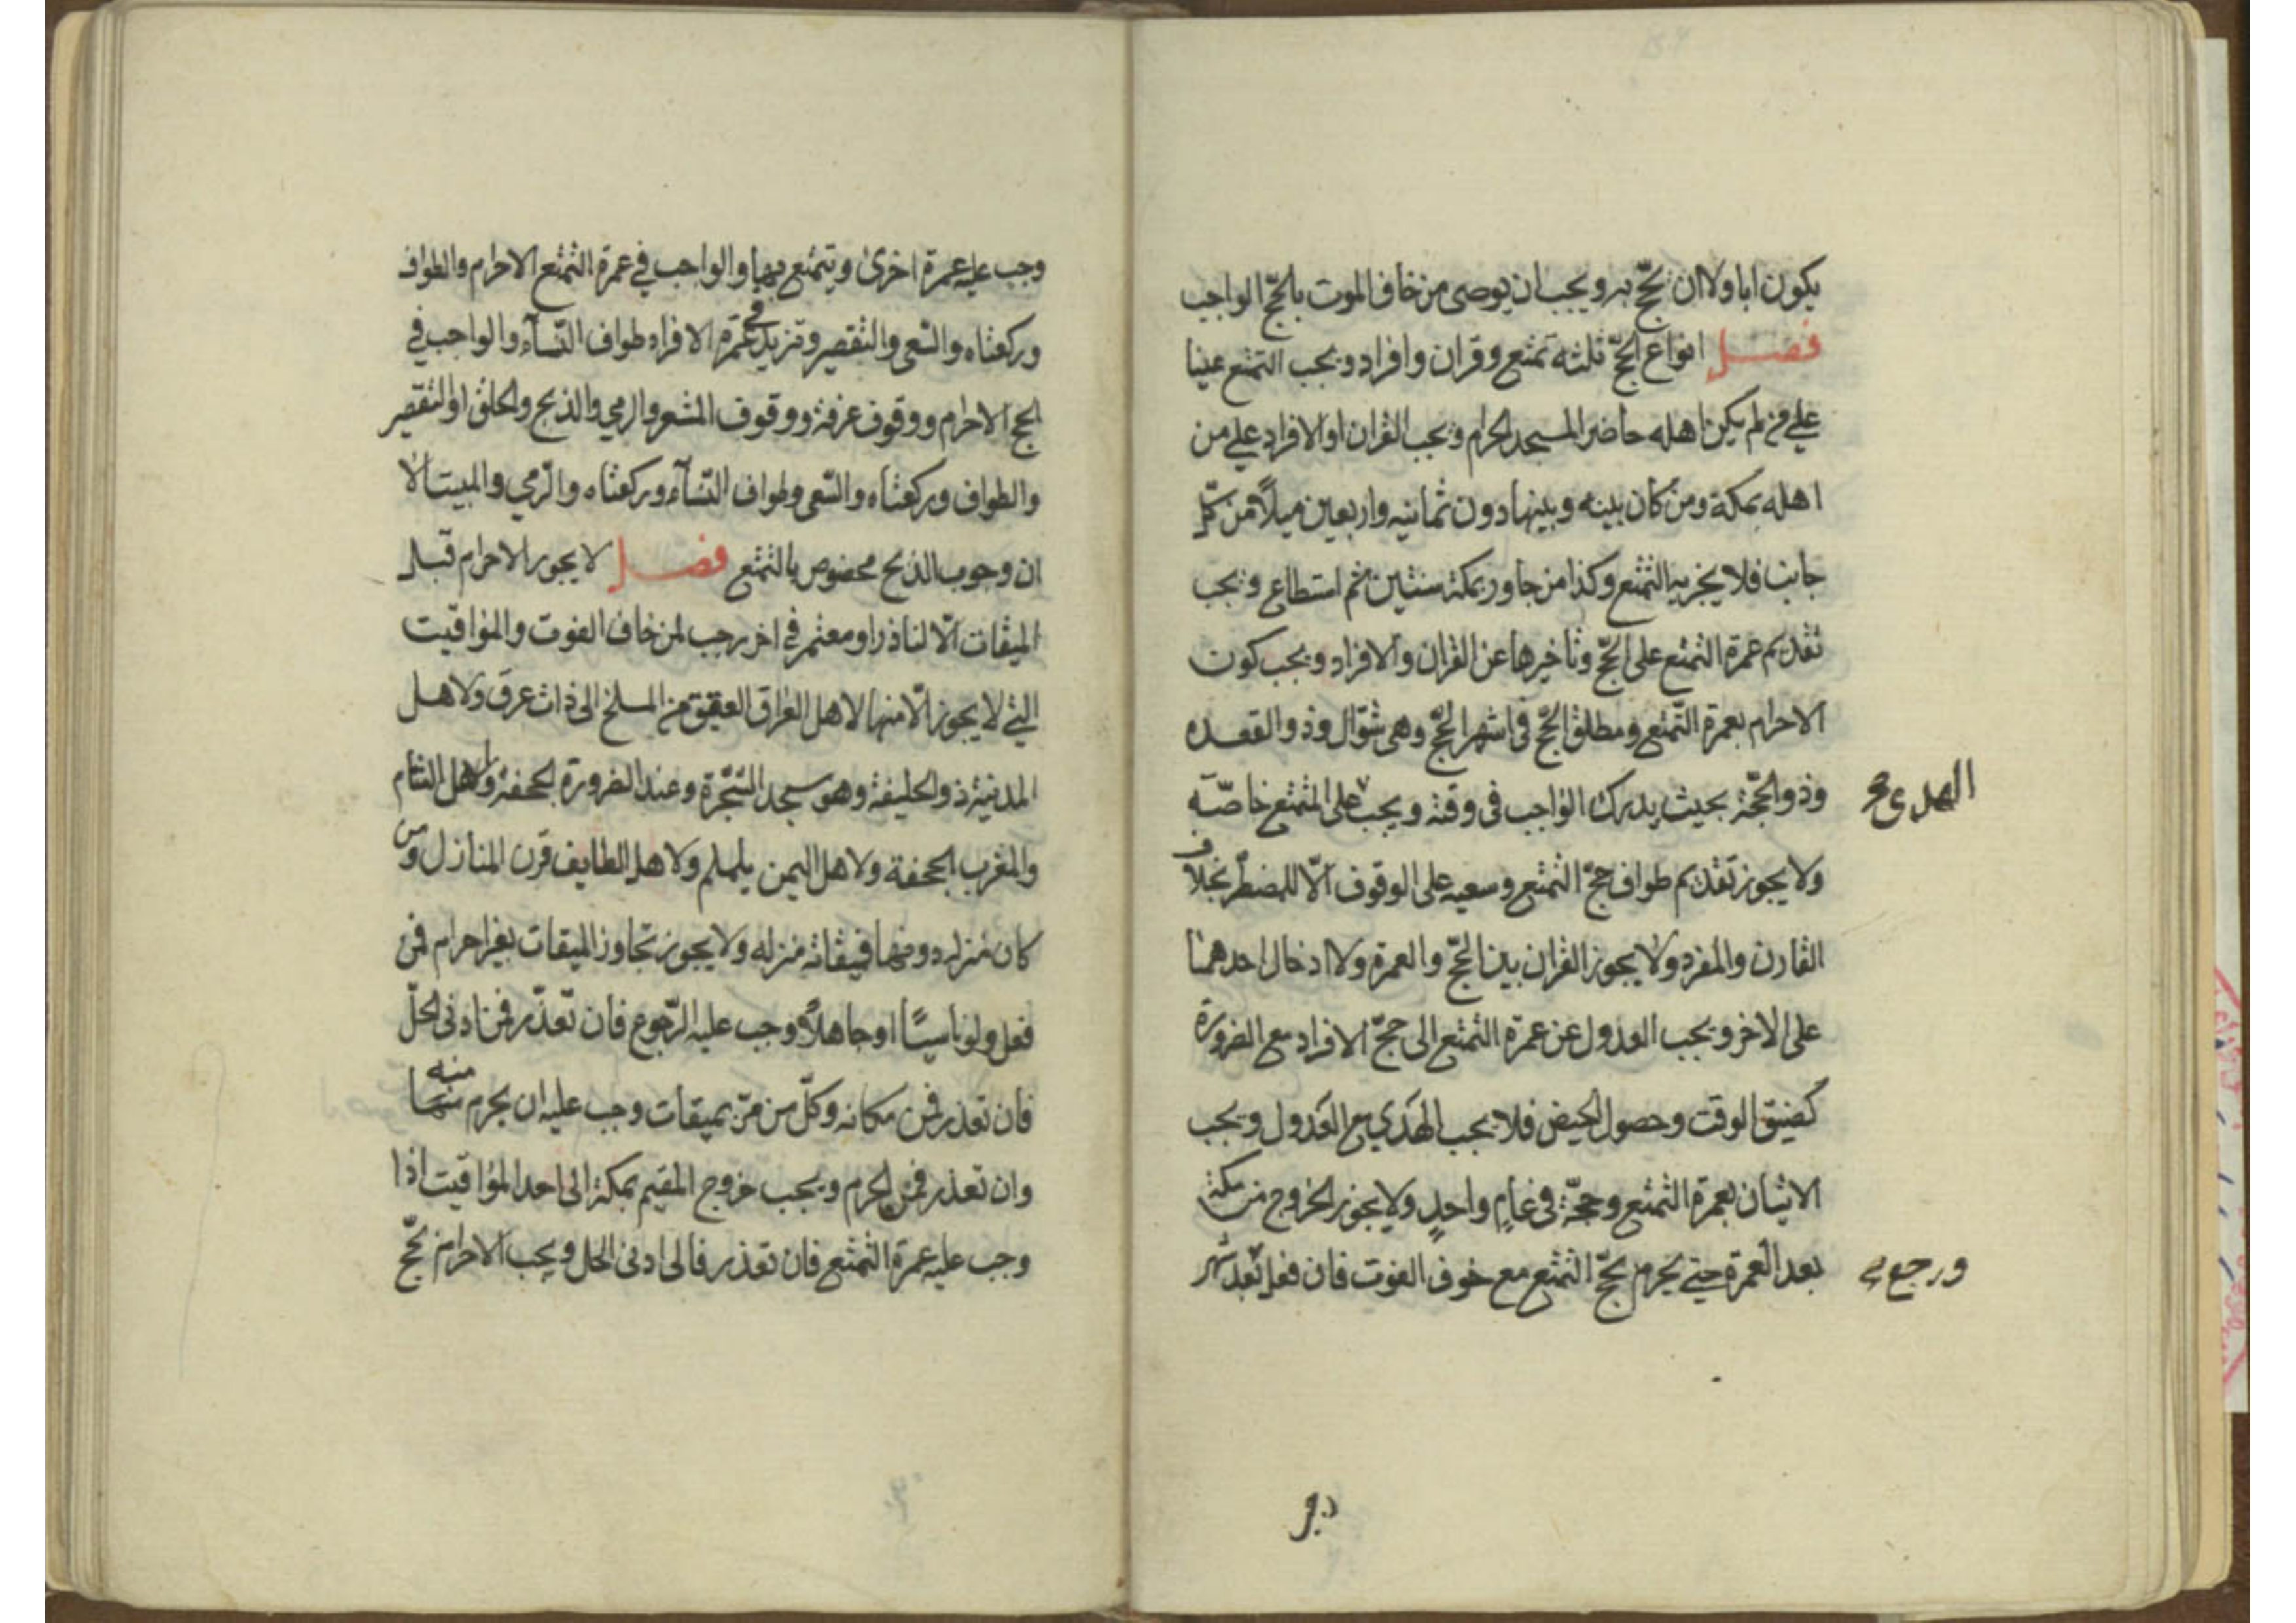 يكون ابا ولا ان يحجّ به ويجب ان يوصى من خاف الموت بالحجّ الواجب
فصل انواع الحجّ ثلثه تمتع وقران وافراد ويجب التمتع عينا
على من لم يكن اهله حاضر المسجد الحرام ويجب القران او الافراد على من
اهله بمكة ومن كان بينه وبينها دون ثمانيه واربعين ميلاً من كلّ
جانب فلا يجزيه التمتع وكذا من جاور بمكة سنتين ثم استطاع ويجب
تقديم عمرة التمتع على الحجّ وتاخيرها عن القران والافراد ويجب كون
الاحرام بعمرة التّمتع ومطلق الحجّ فى اشهر الحجّ وهى شوّال وذو القعده
وذو الحجّة بحيث يدرك الواجب فى وقته ويجب على المتمتع خاصّه
الهدى
ولا يجوز تقديم طواف حجّ التمتع وسعيه على الوقوف الّا للمضطرّ بخلاف
القارن والمفرد ولا يجوز القران بين الحجّ والعمرة ولا ادخال احدهما
على الاخر ويجب العدول عن عمرة التمتع الى حجّ الافراد مع الضرورة
كضيق الوقت وحصول الحيض فلا يجب الهَدي مع العَدول ويجب
الاتيان بعمرة التمتع وحجّه فى عامٍ واحدٍ ولا يجوز الخروج من مكة
بعد العمرة حتى يحرم بحجّ التمتع مع خوف الفوت فان فعل بعد شهر
ورجع
وجب عليه عمرة اخرىٰ ويتمتع بها والواجب في عمرة التمتع الاحرام والطواف
وركعتاه والسّعى والتقصير وتزيد في عمرة الافراد طواف النّسآء والواجب في
الحج الاحرام ووقوف عرفة ووقوف المشعر والرمي والذبح والحلق او التقصير
والطواف وركعتاه والسّعى وطواف النّسآء وركعتاه والرّمي والمبيت الا
ان وجوب الذبح مخصوص بالتمتع فصل لا يجوز الاحرام قبل
الميقات الّا لناذر او معتمر في اخر رجب لمن خاف الفوت والمواقيت
التي لا يجوز الّا منها لاهل العراق العقيق من المسلخ الى ذات عرق ولاهل
المدينة ذو الحليفة وهو مسجد الشجرة وعند الضرورة الجحفة ولاهل الشام
والمغرب الجحفة ولاهل اليمن يلملم ولاهل الطايف قرن المنازل ومن
كان منزله دونها فميقاته منزله ولا يجوز تجاوز الميقات بغير احرام فمن
فعل ولو ناسيًا او جاهلاً وجب عليه الرّجوع فان تعذّر فمن ادنى الحلّ
فان تعذر فمن مكانه وكلّ من مرّ بميقات وجب عليه ان يحرم منها منه
وان تعذر فمن الحرم ويجب خروج المقيم بمكة الى احد المواقيت اذا
وجب عليه عمرة التمتع فان تعذر فالى ادنى الحل ويجب الاحرام بحجّ